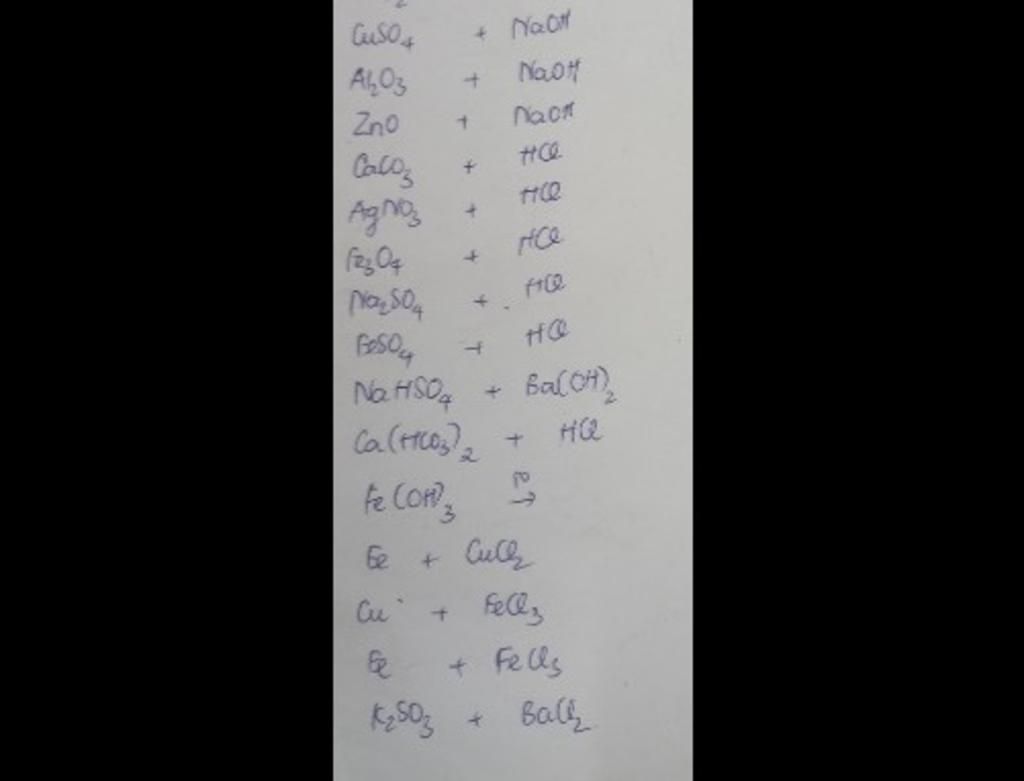 CuSO₄ + NaOH
Al₂O₃ + NaOH
ZnO + NaOH
CaCO₃ + HCl
AgNO₃ + HCl
Fe₃O₄ + HCl
Na₂SO₄ + HCl
FeSO₄ + HCl
NaHSO₄ + Ba(OH)₂
Ca(HCO₃)₂ + HCl
Fe(OH)₃ t⁰→
Fe + CuCl₂
Cu + FeCl₃
Fe + FeCl₃
K₂SO₃ + BaCl₂